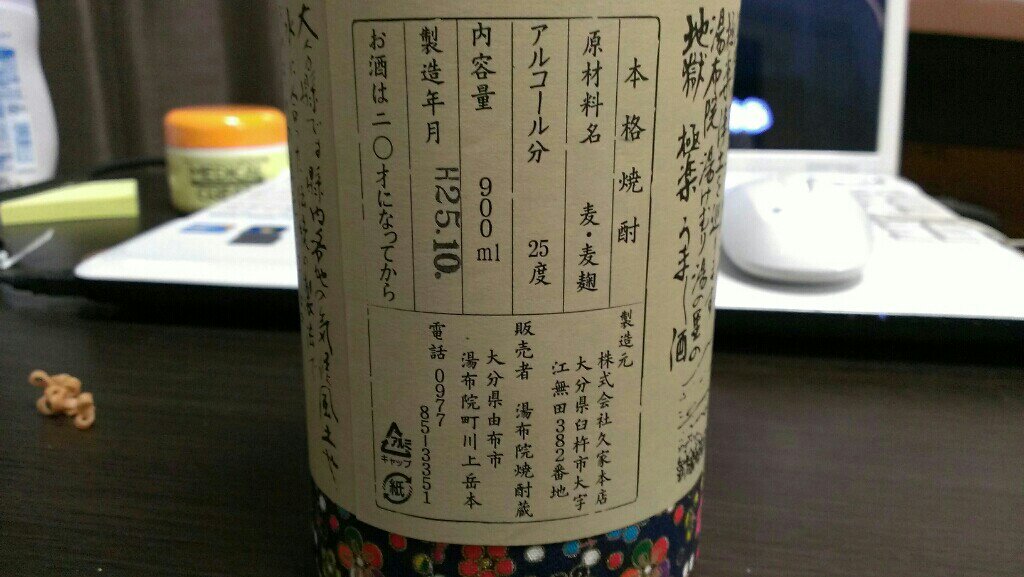 湯布院 湯けむり 湯の里の
地獄 極楽 うまし酒
本格焼酎
原材料名 麦・麦麹
アルコール分 25度
内容量 900ml
製造年月 H25.10.
お酒は二〇才になってから
製造元
株式会社久家本店
大分県臼杵市大字
江無田382番地
販売者 湯布院焼酎蔵
大分県由布市
湯布院町川上岳本
電話 0977
85-3351
アルミ
キャップ
紙
MEDICAL